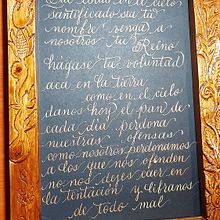 Que estás en el cielo
santificado sea tu
nombre venga a
nosotros tu Reino
hágase tu voluntad
acá en la tierra
como en el cielo
danos hoy el pan de
cada día perdona
nuestras ofensas
como nosotros perdonamos
a los que nos ofenden
no nos dejes caer en
la tentación y líbranos
de todo mal